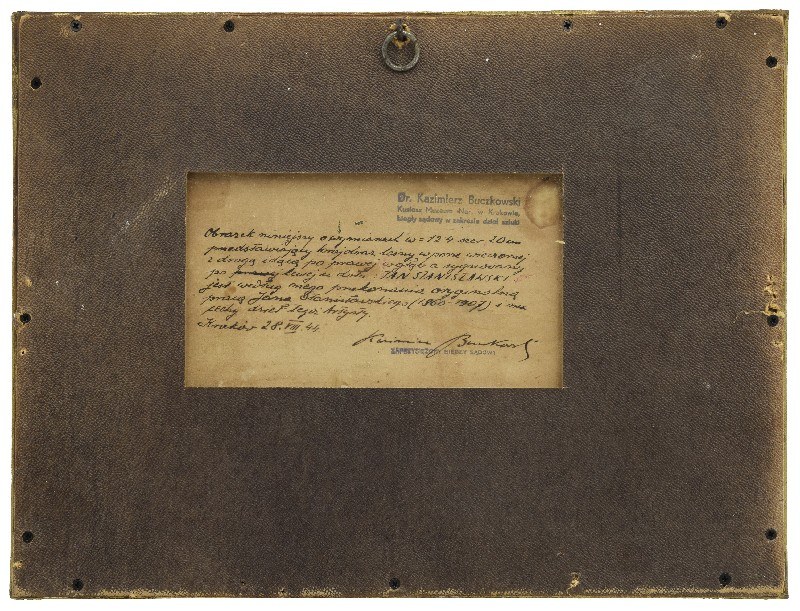 Dr. Kazimierz Buczkowski
Kustosz Muzeum Nar. w Krakowie,
biegły sądowy w zakresie dzieł sztuki
Obrazek niniejszy o wymiarach w = 12 4 szer 20 cm
przedstawiający krajobraz łasny w porze wieczornej
z drogą idącą po prawej w głąb a sygnowany
po prawej lewej u dołu "JAN STANISŁAWSKI"
jest według mego przekonania oryginalną
pracą Jana Stanisławskiego (1860-1907) i ma
cechy dzieł tegoż Artysty.
Kraków 28.VIII.44
Kazimierz Buczkowski
ZAPRZYSIĘŻONY BIEGŁY SĄDOWY